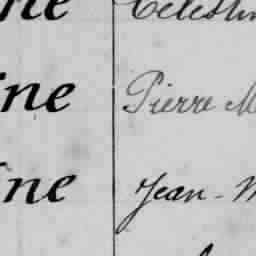 ne Célestin
ine Pierre M
ine Jean-M